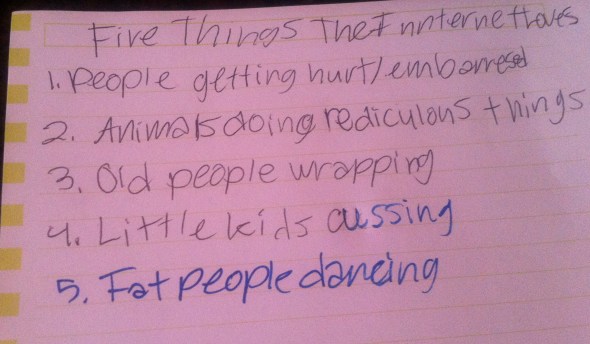 Five Things The Innternet Loves
1. People getting hurt/embarresed
2. Animals doing rediculous things
3. Old people wrapping
4. Little kids cussing
5. Fat people dancing